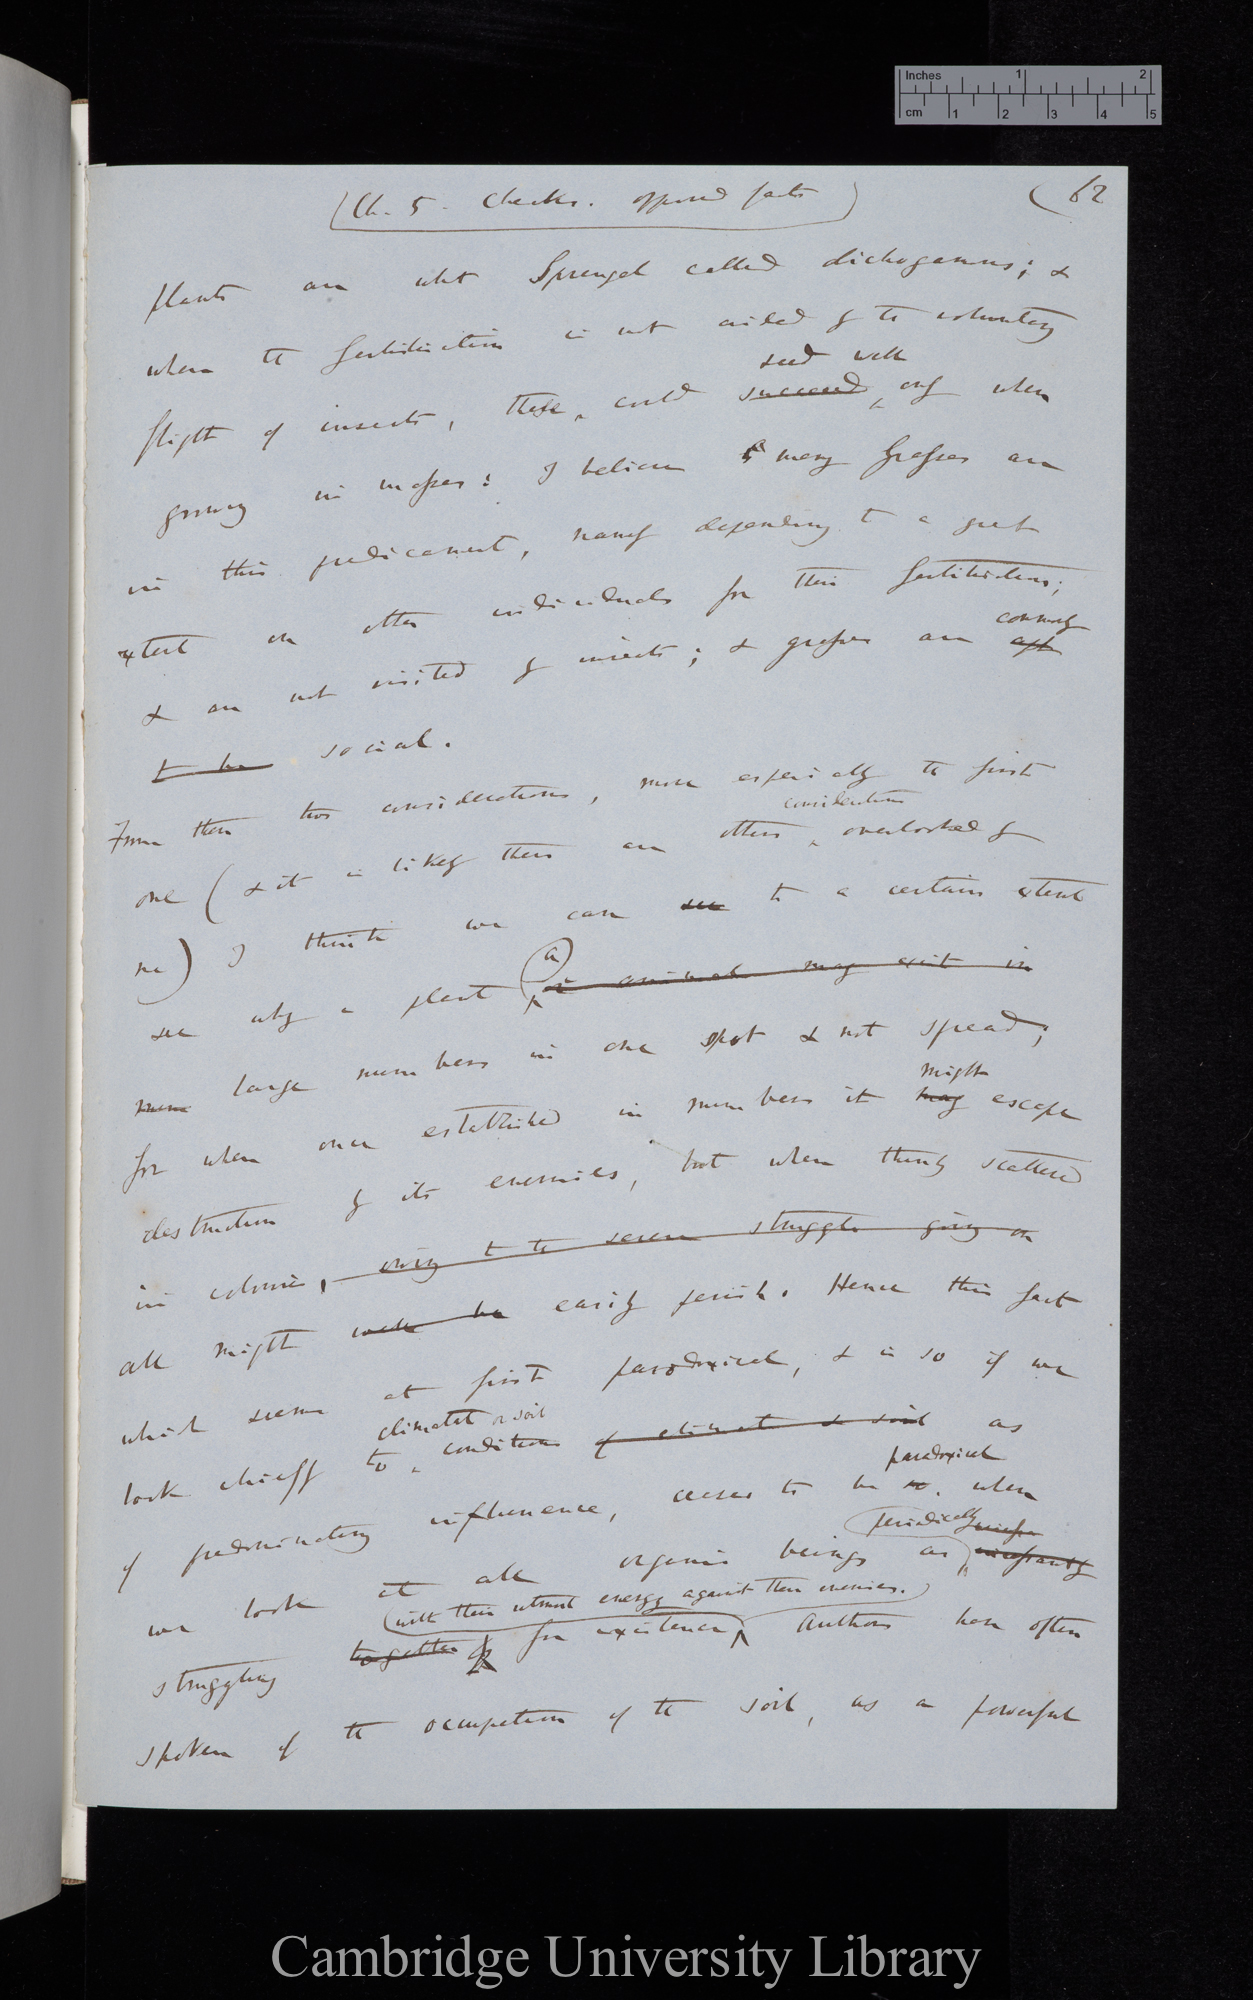 Inches 1 2
cm 1 2 3 4 5
(Ch. 5. Checks. opposed facts)
(62
plants are what Sprengel called dichogamous; &
when the fertilisation is not aided by the voluntary
seed well
flight of insects, these, could succeed only when
growing in masses: I believe many Grasses are
in this predicament, namely depending to a great
extent on other individuals for their fertilisation;
commonly
& are not visited by insects; & grasses are apt
to be social.
From these two considerations, more especially the first
considerations
one (& it is likely there are others overlooked by
me) I think we can see to a certain extent
a
see why a plant or animal may exist in
large numbers in one spot & not spread;
might
for when once established in numbers it may escape
destruction by its enemies, but when thinly scattered
in colonies, owing to the severe struggle going on
all might well be easily perish. Hence this fact
which seems at first paradoxical, & is so if we
climatal or soil
look chiefly to conditions of climate & soil as
paradoxical
of predominating influence, ceases to be so, when
periodically
we look at all organic beings as incessantly
with their utmost energy against their enemies.
struggling together for existence, Authors have often
spoken of the occupation of the soil, as a powerful
Cambridge University Library